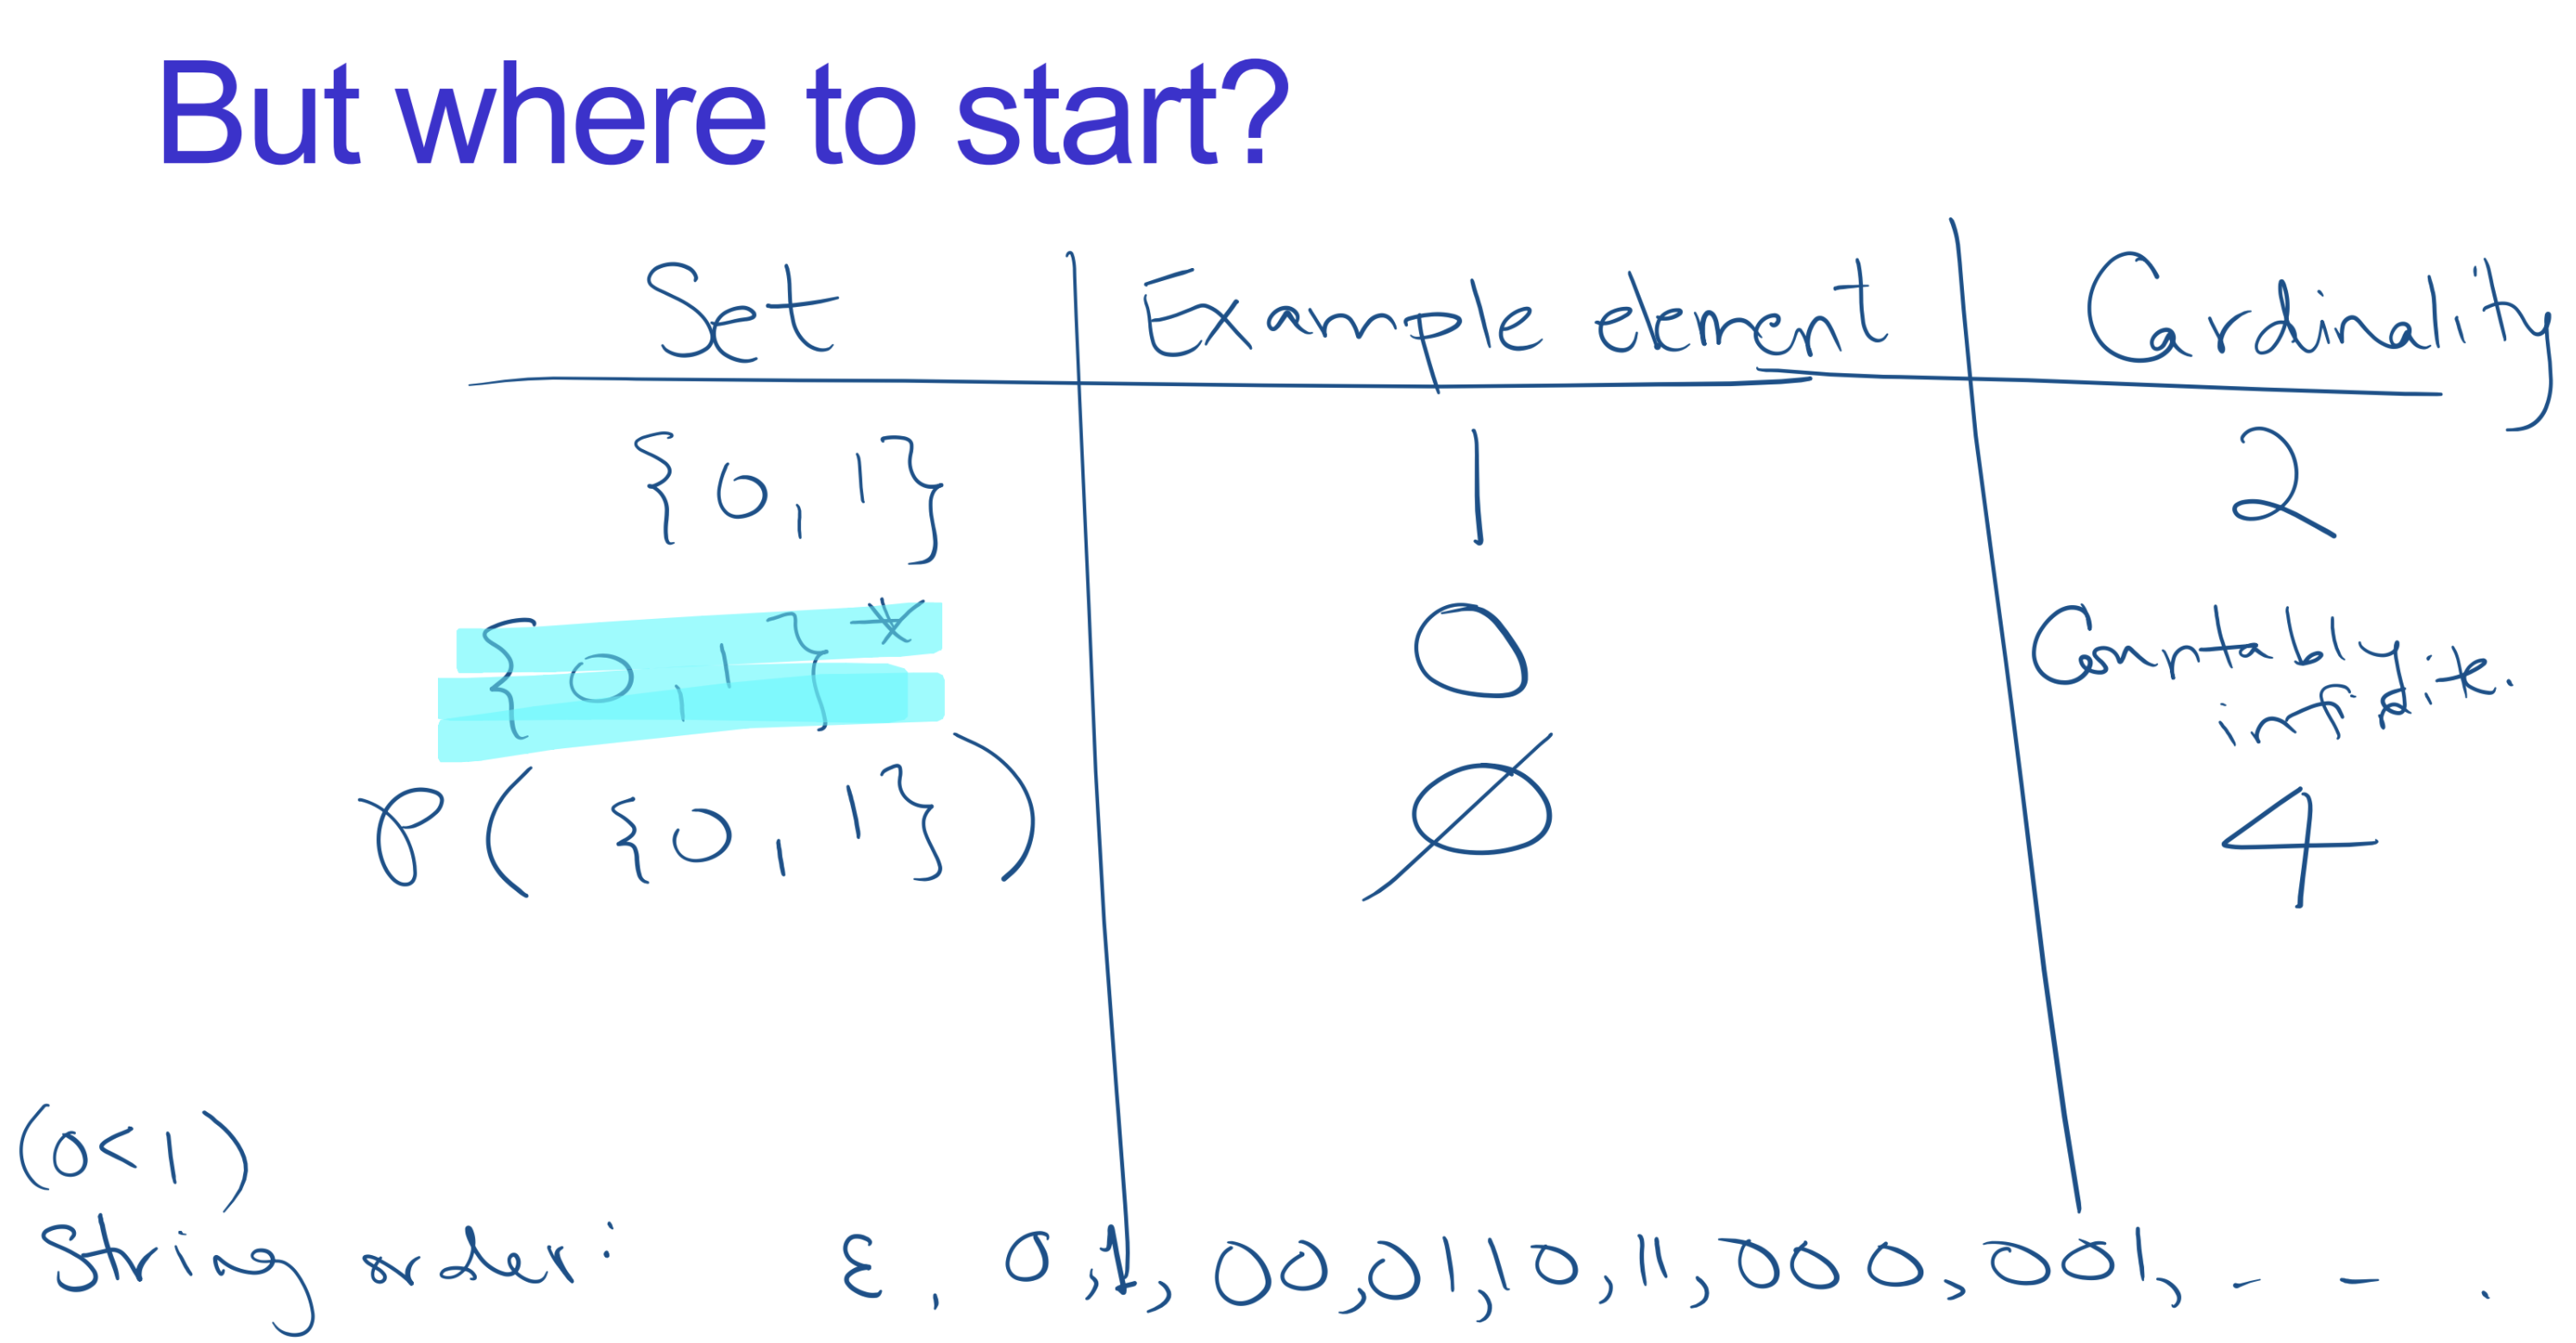 But where to start?
Set Example element Cardinality
{0,1} 1 2
{0,1}* 0 Countably infinite.
P({0,1}) ∅ 4
(0<1)
String order: ε, 0,1,00,01,10,11,000,001,- - .